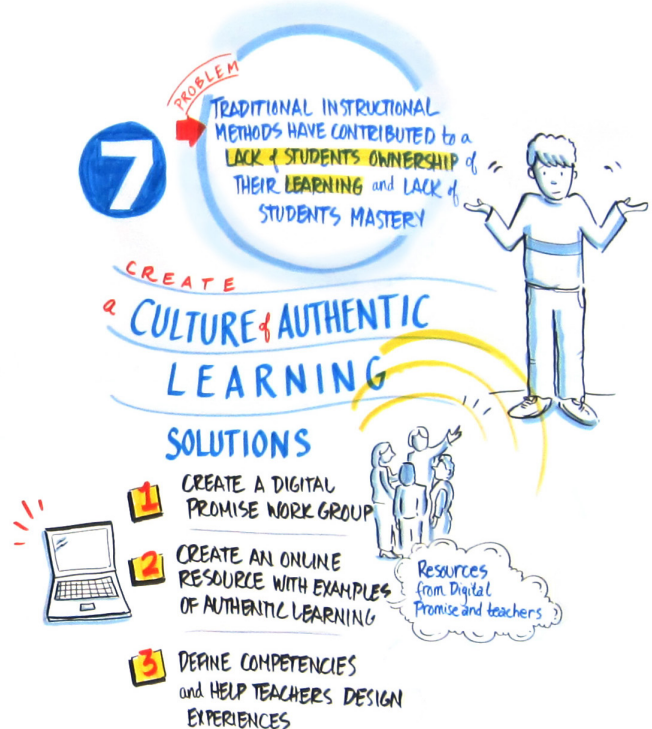 PROBLEM
7
TRADITIONAL INSTRUCTIONAL
METHODS HAVE CONTRIBUTED to a
LACK of STUDENTS OWNERSHIP of
THEIR LEARNING and LACK of
STUDENTS MASTERY
CREATE
a CULTURE of AUTHENTIC
LEARNING
SOLUTIONS
1 CREATE A DIGITAL
PROMISE WORK GROUP
2 CREATE AN ONLINE
RESOURCE WITH EXAMPLES
OF AUTHENTIC LEARNING
Resources
from Digital
Promise and teachers
3 DEFINE COMPETENCIES
and HELP TEACHERS DESIGN
EXPERIENCES